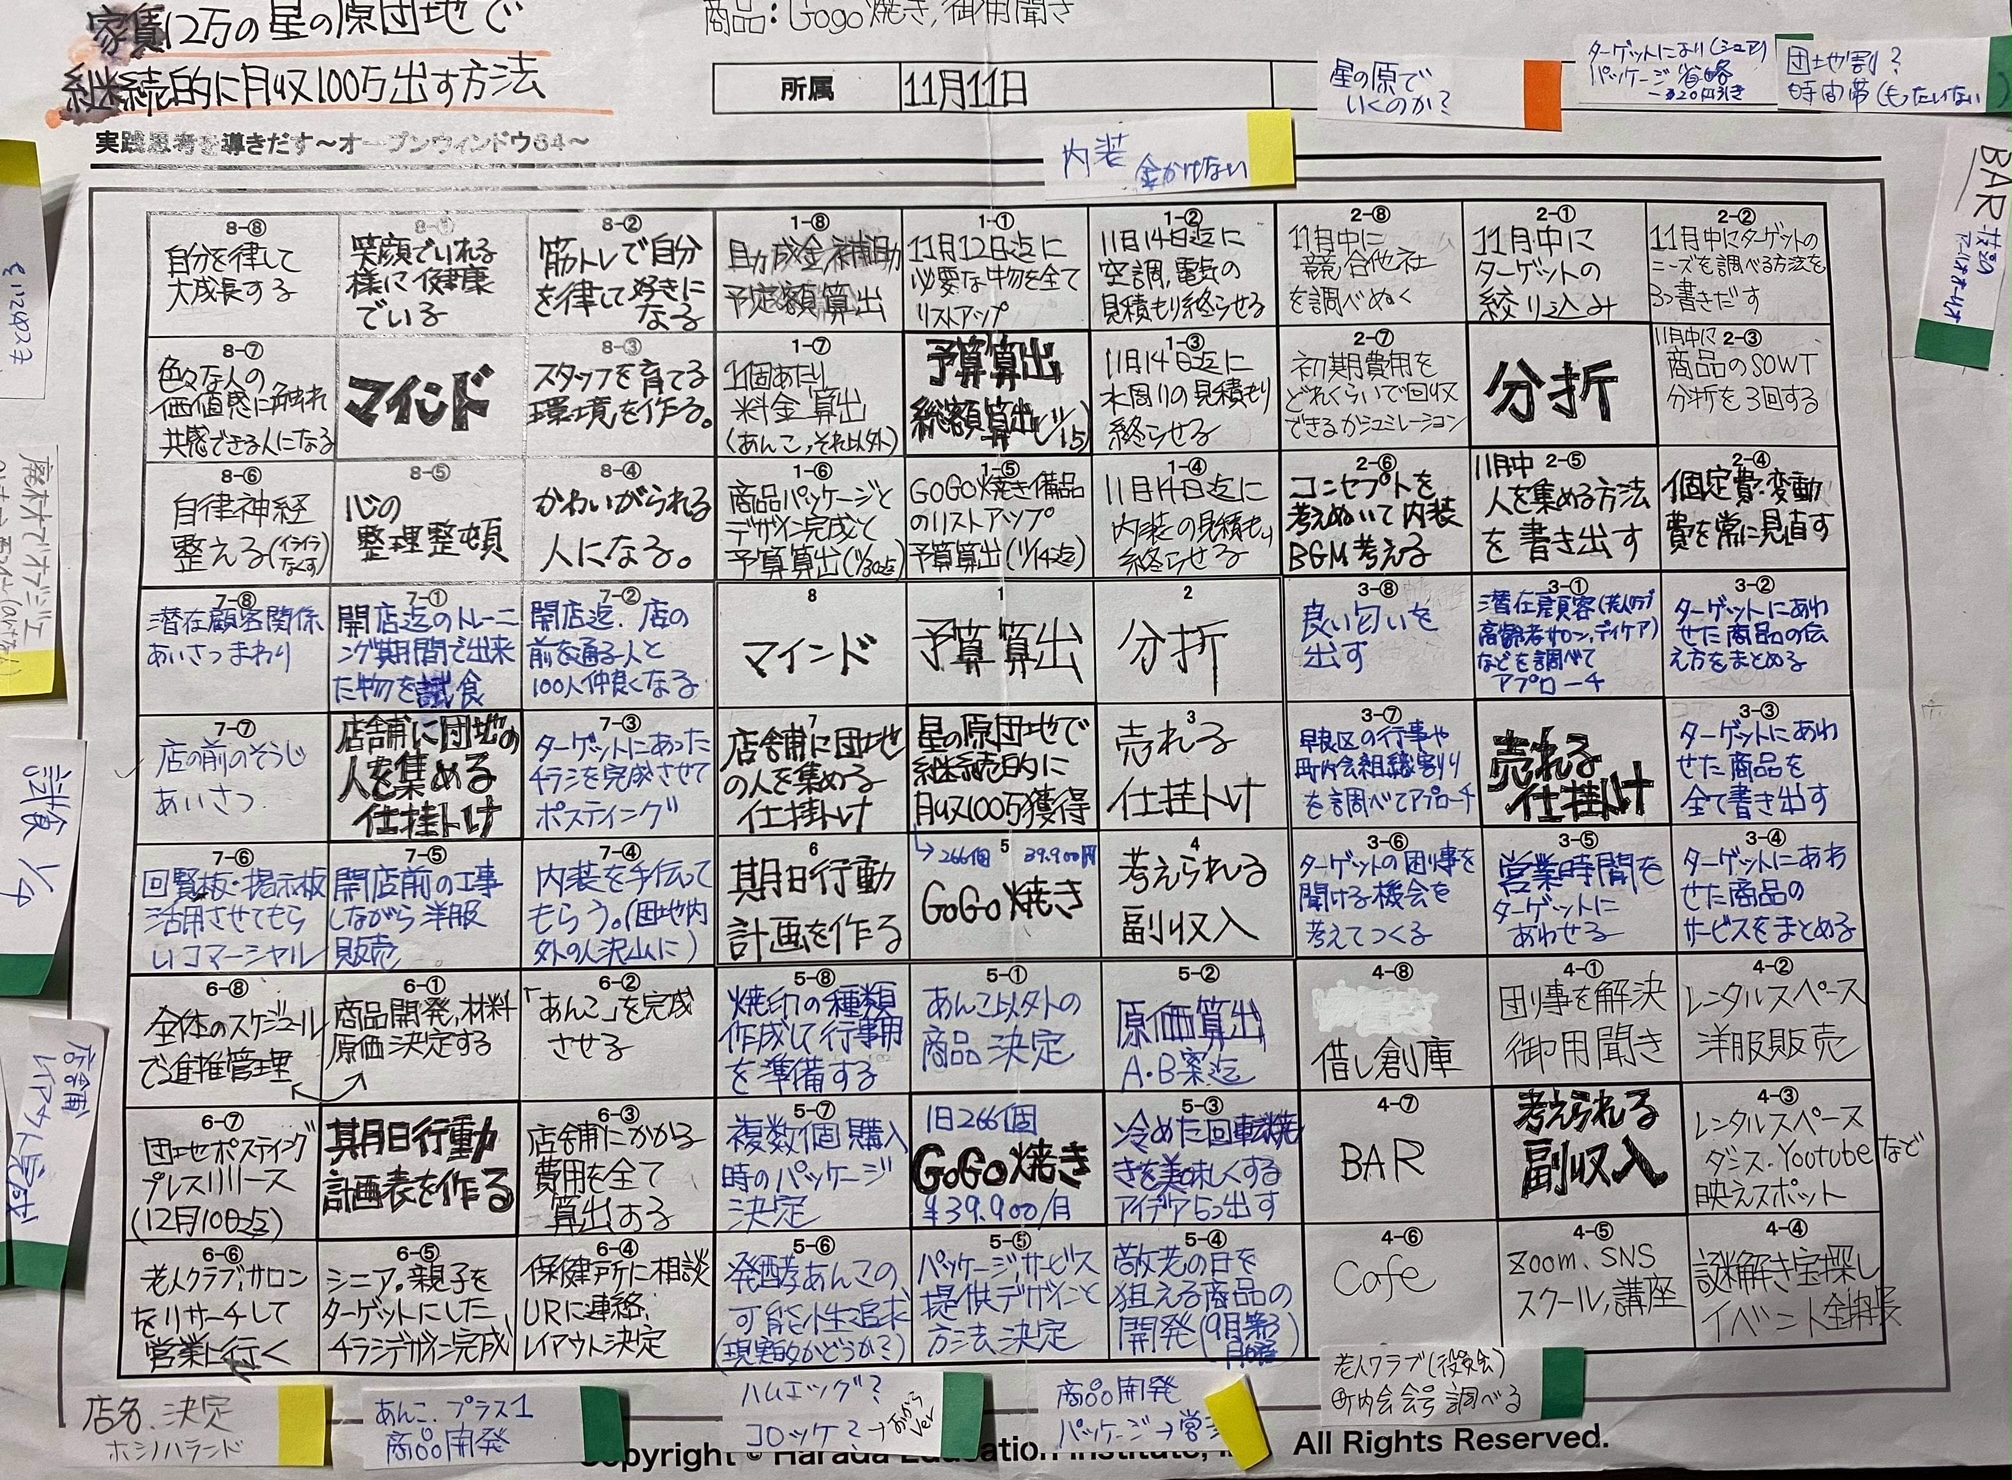 家賃12万の星の原団地で
継続的に月収100万出す方法
商品：Gogo焼き,御用聞き
所属
11月11日
実践思考を導きだす～オープンウィンドウ64～
星の原で
いくのか?
ターゲットにより(シェア)
パッケージ省略
団地割?
時間帯(もったいない
内装
金かけない
BAR
8-⑧
自分を律して
大成長する
笑顔でいれる
様に健康
でいる
8-②
筋トレで自分
を律して好きに
なる
1-⑧
助成金,補助
予定額算出
1-①
11月12日迄に
必要な物を全て
リストアップ
1-②
11月14日迄に
空調,電気の
見積もり終らせる
2-⑧
11月中に
競合他社
を調べぬく
2-①
11月中に
ターゲットの
絞り込み
2-②
11月中にターゲットの
ニーズを調べる方法を
3つ書きだす
8-⑦
色々な人の
価値感に触れ
共感できる人になる
マインド
8-③
スタッフを育てる
環境を作る。
1-⑦
1個あたり
料金算出
(あんこ,それ以外)
予算算出
総額算出(11/15)
1-③
11月14日迄に
水周りの見積もり
終らせる
2-⑦
初期費用を
どれくらいで回収
できるかシュミレーション
分折
2-③
11月中に
商品のSOWT
分析を3回する
8-⑥
自律神経
整える(イライラなくす)
8-⑤
心の
整理整頓
8-④
かわいがられる
人になる。
1-⑥
商品パッケージと
デザイン完成して
予算算出(11/30迄)
1-⑤
GOGO焼き備品
のリストアップ
予算算出(11/14迄)
1-④
11月14日迄に
内装の見積もり
終らせる
2-⑥
コンセプトを
考えぬいて内装
BGM考える
2-⑤
11月中
人を集める方法
を書き出す
2-④
個定費・変動
費を常に見直す
7-⑧
潜在顧客関係
あいさつまわり
7-①
開店迄のトレーニ
ング期間で出来
た物を試食
7-②
開店迄、店の
前を通る人と
100人仲良くなる
8
マインド
1
予算算出
2
分折
3-⑧
良い匂いを
出す
3-①
潜在顧客(老人クラブ
高齢者サロン,デイケア)
などを調べて
アプローチ
3-②
ターゲットにあわ
せた商品の伝
え方をまとめる
7-⑦
店の前のそうじ
あいさつ
店舗に団地の
人を集める
仕掛け
7-③
ターゲットにあった
チラシを完成させて
ポスティング
7
店舗に団地
の人を集める
仕掛け
星の原団地で
継続的に
月収100万獲得
3
売れる
仕掛け
3-⑦
早良区の行事や
町内会組織割り
を調べてアプローチ
売れる
仕掛け
3-③
ターゲットにあわ
せた商品を
全て書き出す
7-⑥
回覧板・掲示板
活用させてもら
いコマーシャル
7-⑤
開店前の工事
しながら洋服
販売
7-④
内装を手伝って
もらう。(団地内
外の人沢山に)
6
期日行動
計画を作る
→266個 5 39.900円
GoGo焼き
4
考えられる
副収入
3-⑥
ターゲットの困り事を
聞ける機会を
考えてつくる
3-⑤
営業時間を
ターゲットに
あわせる
3-④
ターゲットにあわ
せた商品の
サービスをまとめる
6-⑧
全体のスケジュール
で進捗管理
6-①
商品開発,材料
原価決定する
6-②
「あんこ」を完成
させる
5-⑧
焼印の種類
作成して行事用
を準備する
5-①
あんこ以外の
商品決定
5-②
原価算出
A・B案迄
4-⑧
借し倉庫
4-①
困り事を解決
御用聞き
4-②
レンタルスペース
洋服販売
6-⑦
団地ポスティング
プレスリリース
(12月10日迄)
其月日行動
計画表を作る
6-③
店舗にかかる
費用を全て
算出する
5-⑦
複数個購入
時のパッケージ
決定
1日266個
GoGo焼き
¥39.900/月
5-③
冷めた回転焼
きを美味しくする
アイデア5つ出す
4-⑦
BAR
考えられる
副収入
4-③
レンタルスペース
ダンス.Youtubeなど
映えスポット
6-⑥
老人クラブ,サロン
をリサーチして
営業に行く
6-⑤
シニア。親子を
ターゲットにした
チラシデザイン完成
6-④
保健所に相談
URに連絡,
レイアウト決定
5-⑥
発酵あんこの
可能性追求
(現実的かどうか?)
5-⑤
パッケージ,サービス
提供デザインと
方法決定
5-④
敬老の日を
狙える商品の
開発(9月第3
月曜)
4-⑥
Cafe
4-⑤
Zoom、SNS
スクール,講座
4-④
謎解き宝探し
イベント
試食 1/4
店舗
レイアウト完成
店名、決定
ホシノハランド
あんこ、プラス1
商品開発
ハムエッグ?
コロッケ?→おからver
商品開発
パッケージ→営
老人クラブ(役員会)
町内会会号調べる
Copyright © Harada Education Institute,
All Rights Reserved.